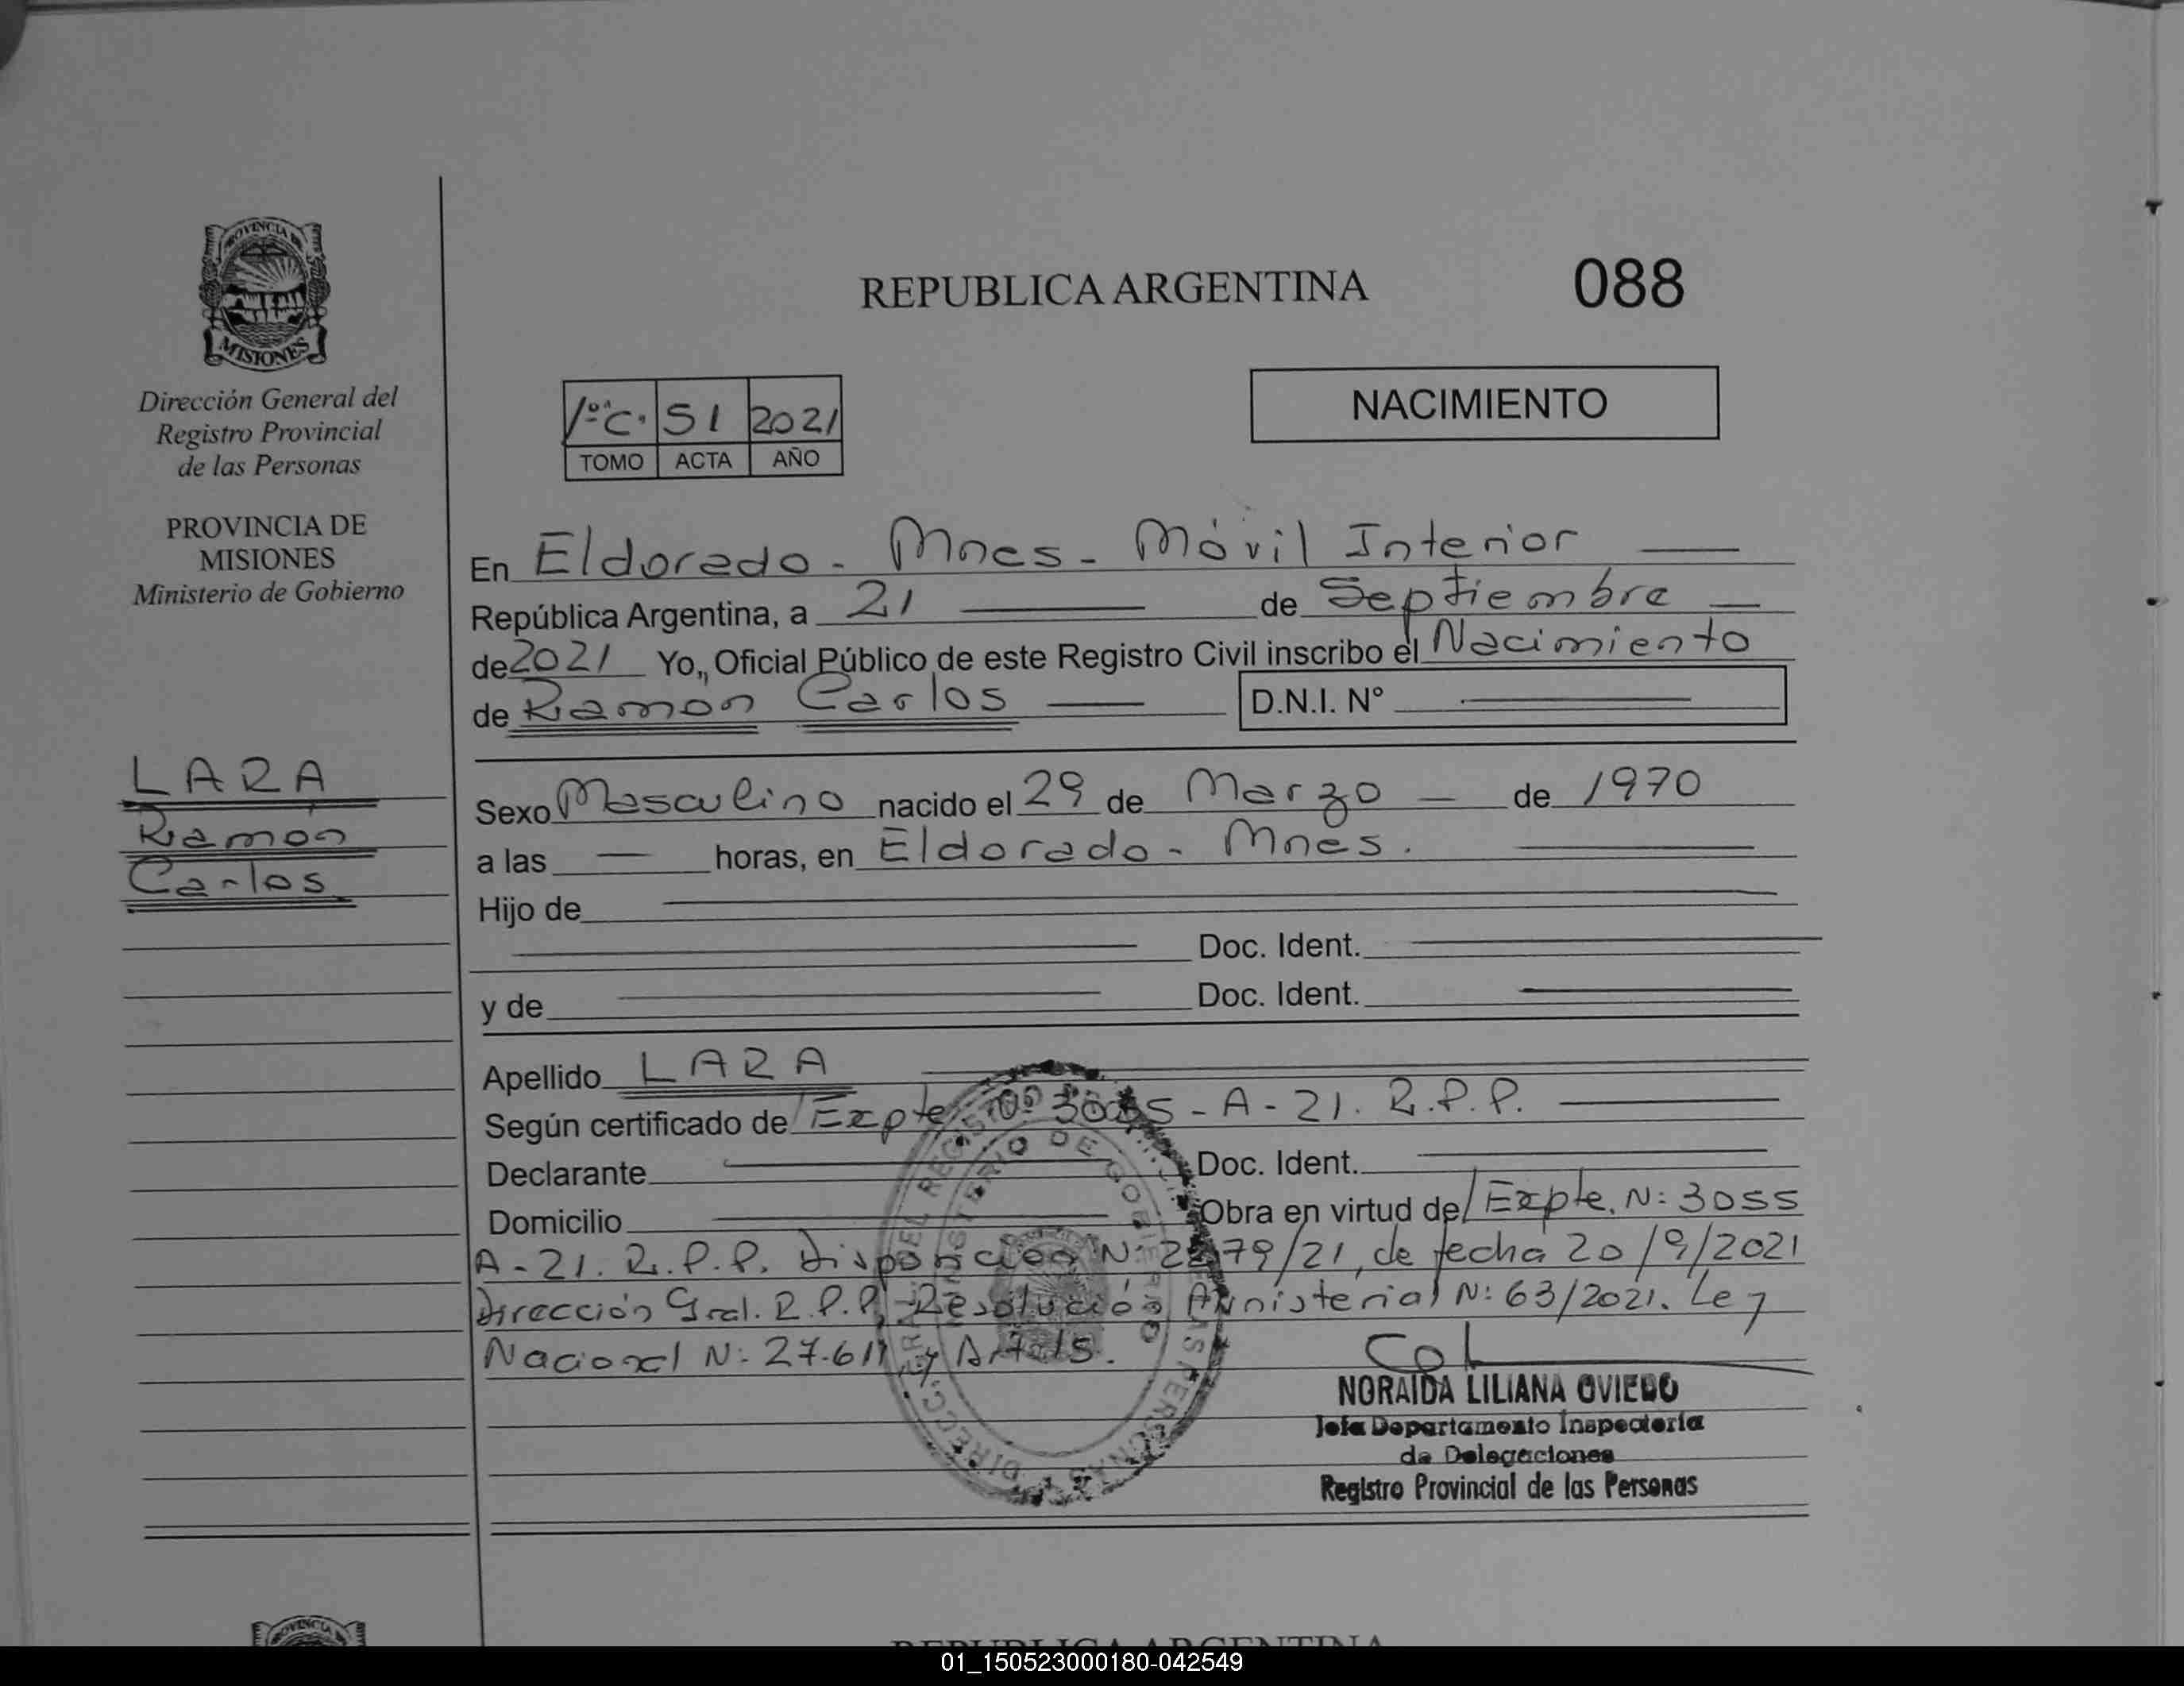 PROVINCIA DE
MISIONES
Dirección General del
Registro Provincial
de las Personas
PROVINCIA DE
MISIONES
Ministerio de Gobierno
LARA
Ramón
Carlos
REPUBLICA ARGENTINA
088
NACIMIENTO
1º C. 51 2021
TOMO ACTA AÑO
En Eldorado - Mnes - Móvil Interior
República Argentina, a 21 de Septiembre
de 2021 Yo,, Oficial Público de este Registro Civil inscribo el Nacimiento
de Ramon Carlos D.N.I. Nº
Sexo Masculino nacido el 29 de Marzo de 1970
a las horas, en Eldorado - Mnes.
Hijo de
Doc. Ident.
y de Doc. Ident.
Apellido LARA
Según certificado de Expte Nº 3055 - A - 21. R.P.P.
Declarante Doc. Ident.
Domicilio Obra en virtud de Expte. N: 3055
A - 21. R.P.P. Disposición N: /21, de fecha 20/9/2021
Dirección Gral. R.P.P. Resolución Ministerial N: 63/2021. Ley
Nacional N: 27.611 y
NORAIDA LILIANA OVIEDO
Jefa Departamento Inspectoría
de Delegaciones
Registro Provincial de las Personas
REPUBLICA ARGENTINA
01_150523000180-042549